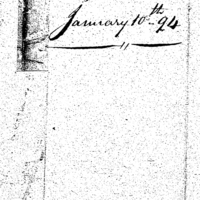 January 10th 94